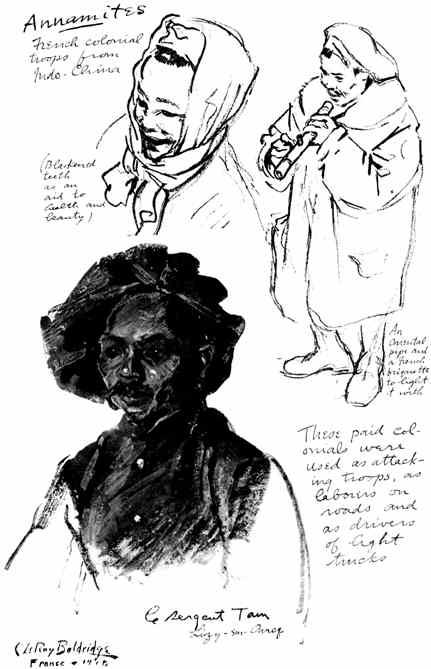 Annamites
French colonial
troops from
Indo-China
(Blackened
teeth
as an
aid to
health and
beauty)
An
Oriental
pipe and
a French
briquette
to light
it with
These paid col-
onials were
used as attack-
ing troops, as
labours on
roads and
as drivers
of light
trucks
le sergent Tam
Lizy-sur-Ourcq
C LeRoy Baldridge
France - 1918